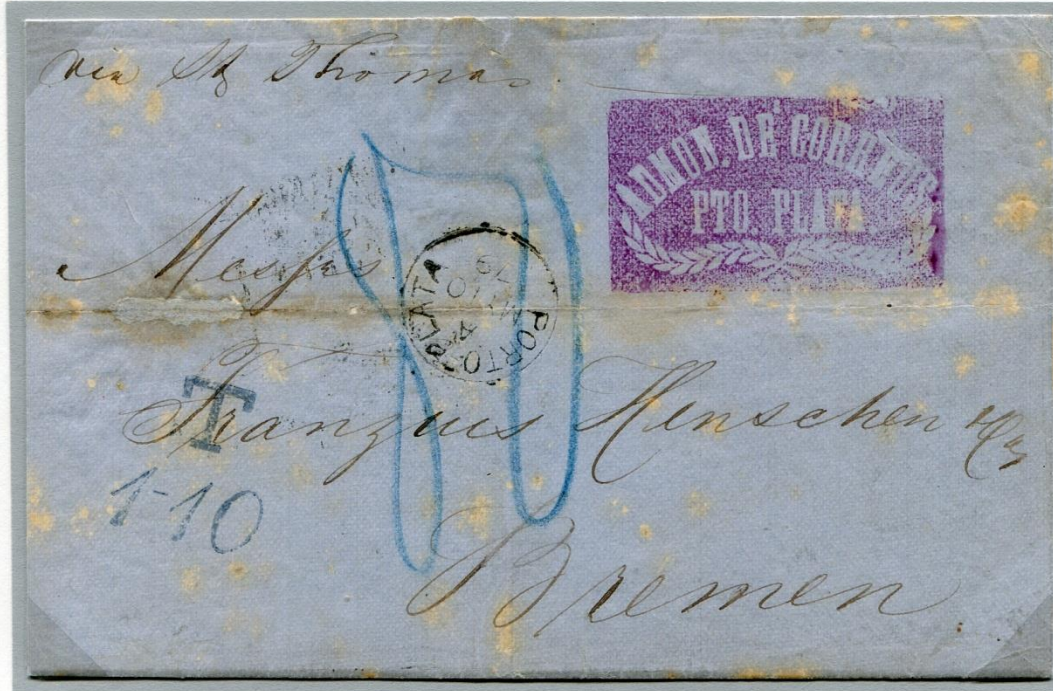 via St Thomas
ADMON. DE CORREOS
PTO. PLATA
Messrs
PORTO-PLATA
Franzius Henschen & Co
T
1-10
Bremen